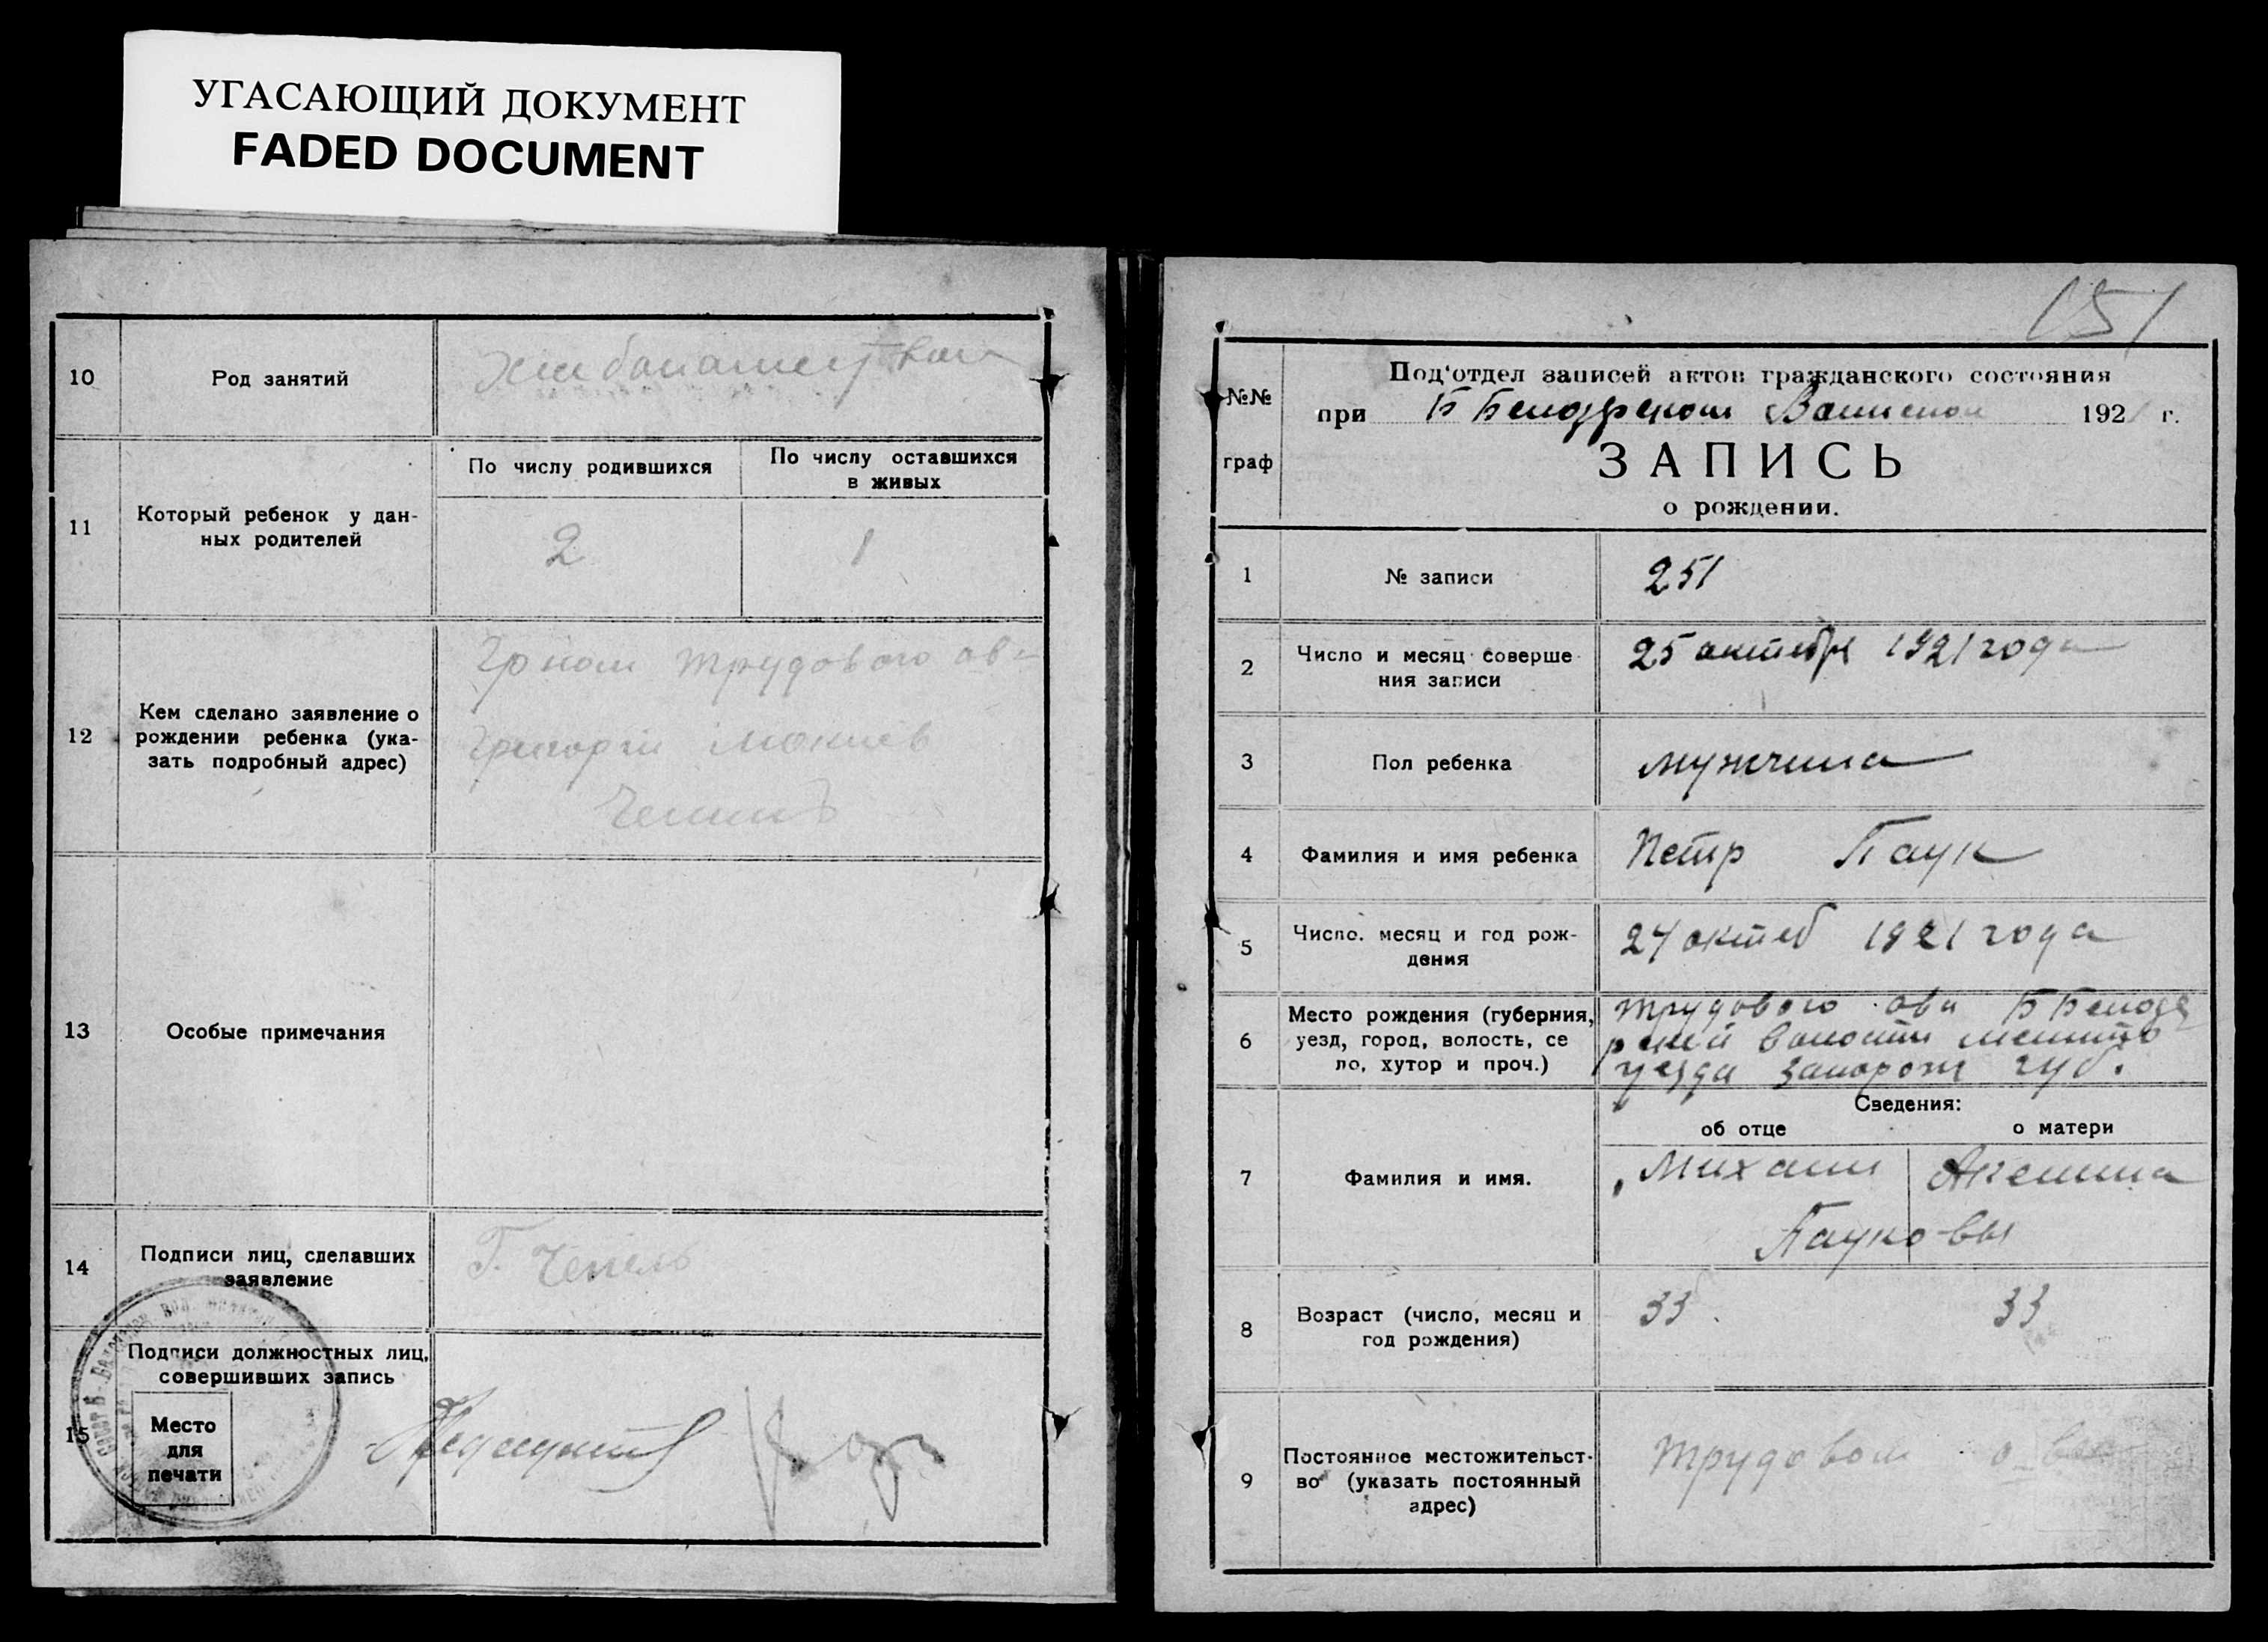 УГАСАЮЩИЙ ДОКУМЕНТ
FADED DOCUMENT
10
Род занятий
11
Который ребенок у дан-
ных родителей
По числу родившихся
По числу оставшихся
в живых
2
1
12
Кем сделано заявление о
рождении ребенка (ука-
зать подробный адрес)
трудового
Григорий
13
Особые примечания
14
Подписи лиц, сделавших
заявление
Г. Чепель
15
Подписи должностных лиц,
совершивших запись
Место
для
печати
151
№№
граф
Под'отдел записей актов гражданского состояния
при Б Белозерском 192 г.
ЗАПИСЬ
о рождении.
1
№ записи
251
2
Число и месяц соверше-
ния записи
25 октября 1921 года
3
Пол ребенка
мужчина
4
Фамилия и имя ребенка
Петр Паук
5
Число, месяц и год рож-
дения
24 октяб 1921 года
6
Место рождения (губерния,
уезд, город, волость, се
ло, хутор и проч.)
Трудового Б Белозе
рской волости мелито
уезда Запорож губ.
Сведения:
об отце
о матери
7
Фамилия и имя.
Михаил
Аксинья
Пауковы
8
Возраст (число, месяц и
год рождения)
33
33
9
Постоянное местожительст-
во (указать постоянный
адрес)
Трудовом